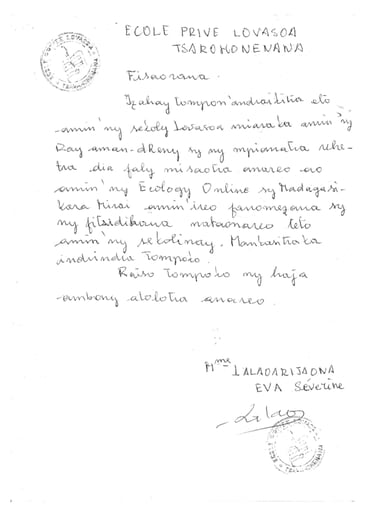 ECOLE PRIVE LOVASOA
TSAROHONENANA
Fisaorana.
Izahay tompon'andraikitra eto
amin'ny sekoly Lovasoa miaraka amin'ny
Ray aman-dReny sy ny mpianatra rehe-
tra dia faly misaotra anareo ao
amin'ny Ecology Online sy Madagasi-
kara Mirai amin'ireo fanomezana sy
ny fitsidihana nataonareo teto
amin'ny sekolinay. Mankasitraka
indrindra Tompoko.
Raiso Tompoko ny haja
ambony atolotra anareo.
Mme LALAOARIJAONA
EVA Séverine